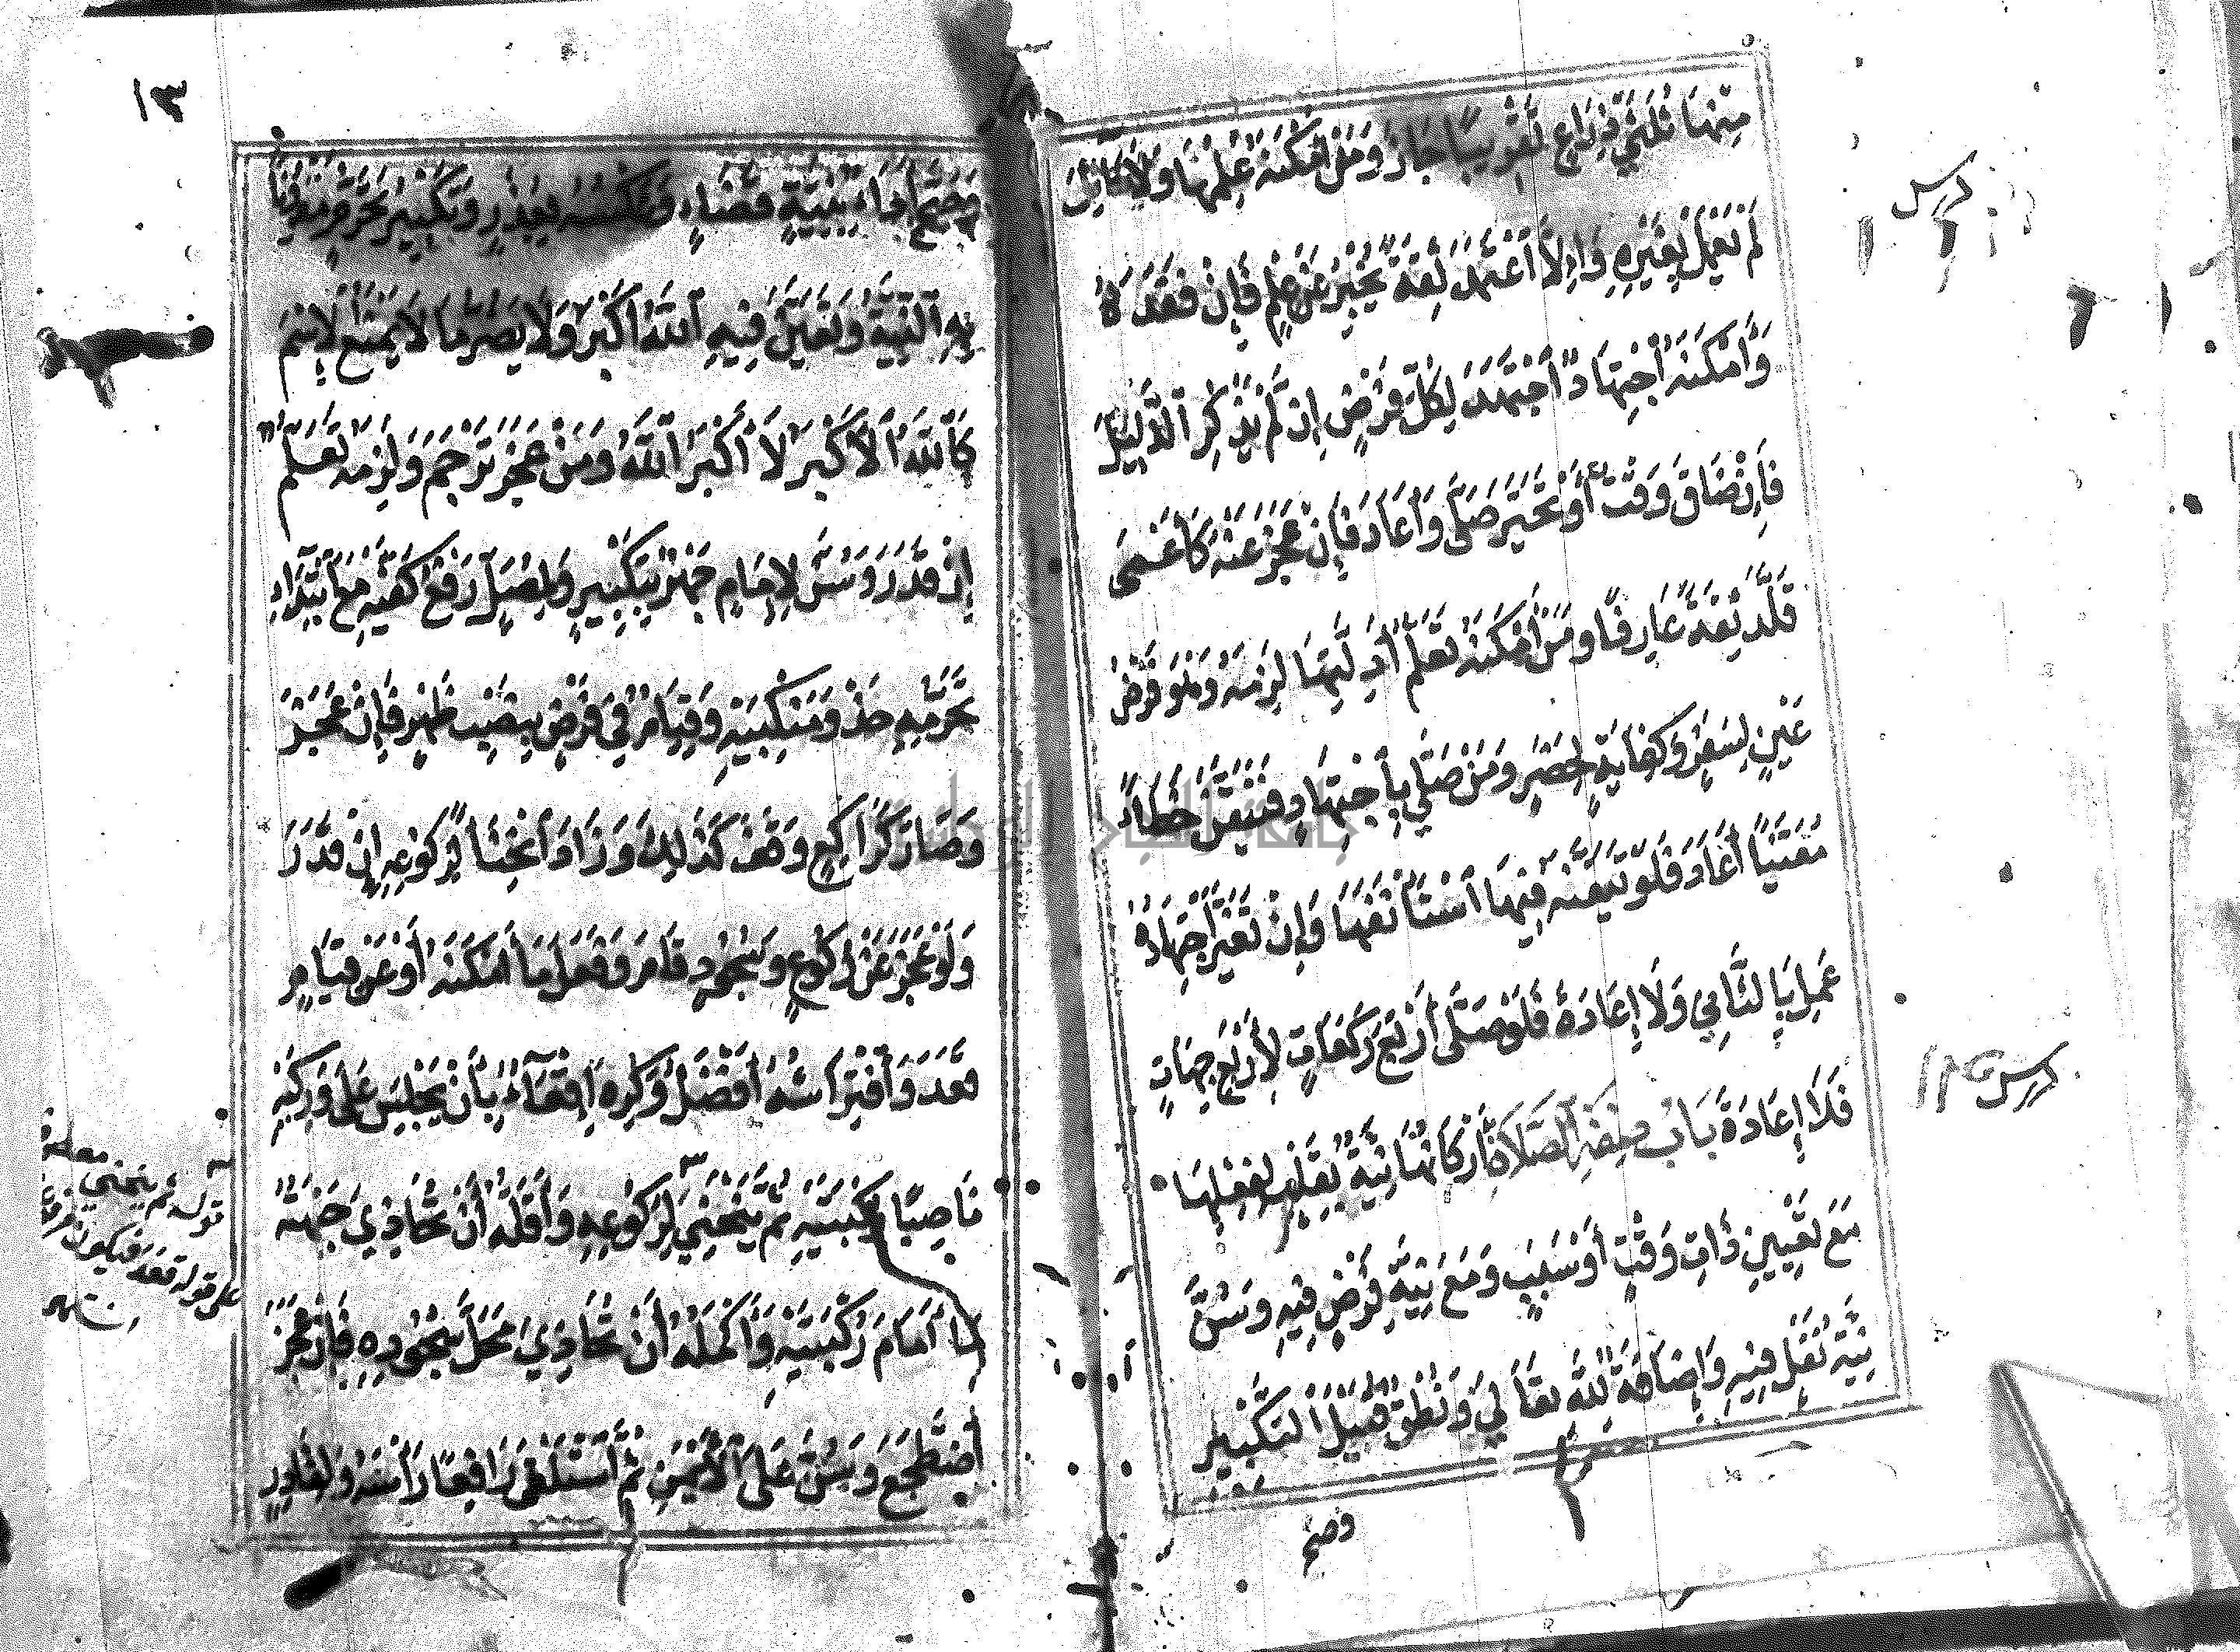 مِنْهَا ثُلُثَيْ ذِرَاعٍ تَقْرِيبًا جَازَ وَمَنْ أَمْكَنَهُ عِلْمُهَا وَلَا حَائِلَ
لَمْ يَعْمَلْ بِغَيْرِهِ وَإِلَّا اعْتَمَدَ ثِقَةً يُخْبِرُ عَنْ عِلْمٍ فَإِنْ فَقَدَهُ
وَأَمْكَنَهُ اجْتِهَادٌ اجْتَهَدَ لِكُلِّ فَرْضٍ إِنْ لَمْ يَذْكُرِ الدَّلِيلَ
فَإِنْ ضَاقَ وَقْتٌ أَوْ تَحَيَّرَ صَلَّى وَأَعَادَ فَإِنْ عَجَزَ عَنْهُ كَأَعْمَى
قَلَّدَ ثِقَةً عَارِفًا وَمَنْ أَمْكَنَهُ تَعَلُّمُ أَدِلَّتِهَا لَزِمَهُ وَهُوَ فَرْضُ
عَيْنٍ لِسَفَرٍ وَكِفَايَةٍ لِحَضَرٍ وَمَنْ صَلَّى بِاجْتِهَادٍ فَتَيَقَّنَ خَطَأً
مُعَيَّنًا أَعَادَ فَلَوْ تَيَقَّنَهُ فِيهَا اسْتَأْنَفَهَا وَإِنْ تَغَيَّرَ اجْتِهَادُهُ
عَمِلَ بِالثَّانِي وَلَا إِعَادَةَ فَلَوْ صَلَّى أَرْبَعَ رَكَعَاتٍ لِأَرْبَعِ جِهَاتٍ
فَلَا إِعَادَةَ بَابُ صِفَةِ الصَّلَاةِ أَرْكَانُهَا نِيَّةٌ بِقَلْبٍ لِفِعْلِهَا
مَعَ تَعْيِينِ ذَاتِ وَقْتٍ أَوْ سَبَبٍ وَمَعَ نِيَّةِ فَرْضٍ فِيهِ وَسُنَّ
نِيَّةُ نَفْلٍ فِيهِ وَإِضَافَةٌ لِلَّهِ تَعَالَى وَنُطْقٌ قُبَيْلَ التَّكْبِيرِ
وصح
درس
درس
١٣
وَصَحَّ أَدَاءٌ بِنِيَّةِ قَضَاءٍ وَعَكْسُهُ بِعُذْرٍ وَتَكْبِيرُ تَحَرُّمٍ مَقْرُونًا
بِهِ النِّيَّةُ وَتَعَيَّنَ فِيهِ اللَّهُ أَكْبَرُ وَلَا يَضُرُّ مَا لَا يَمْنَعُ الِاسْمَ
كَاللَّهُ الْأَكْبَرُ لَا أَكْبَرُ اللَّهُ وَمَنْ عَجَزَ تَرْجَمَ وَلَزِمَهُ تَعَلُّمٌ
إِنْ قَدَرَ وَسُنَّ لِإِمَامٍ جَهْرٌ بِتَكْبِيرٍ وَلِمُصَلٍّ رَفْعُ كَفَّيْهِ مَعَ ابْتِدَاءِ
تَحَرُّمِهِ حَذْوَ مَنْكِبَيْهِ وَقِيَامٌ فِي فَرْضٍ بِنَصْبِ ظَهْرٍ فَإِنْ عَجَزَ
وَصَارَ كَرَاكِعٍ وَقَفَ كَذَلِكَ وَزَادَ انْحِنَاءً لِرُكُوعِهِ إِنْ قَدَرَ
وَلَوْ عَجَزَ عَنْ رُكُوعٍ وَسُجُودٍ قَامَ وَفَعَلَ مَا أَمْكَنَهُ أَوْ عَنْ قِيَامٍ
قَعَدَ وَافْتِرَاشُهُ أَفْضَلُ وَكُرِهَ إِقْعَاءٌ بِأَنْ يَجْلِسَ عَلَى وَرِكَيْهِ
نَاصِبًا رُكْبَتَيْهِ ثُمَّ يَنْحَنِي لِرُكُوعِهِ وَأَقَلُّهُ أَنْ تُحَاذِيَ جَبْهَتُهُ
مَا أَمَامَ رُكْبَتَيْهِ وَأَكْمَلُهُ أَنْ تُحَاذِيَ مَحَلَّ سُجُودِهِ فَإِنْ عَجَزَ
اضْطَجَعَ وَسُنَّ عَلَى الْأَيْمَنِ ثُمَّ اسْتَلْقَى رَافِعًا رَأْسَهُ وَلِقَادِرٍ
قوله ثم ينحني
على قوله قعد فيكون